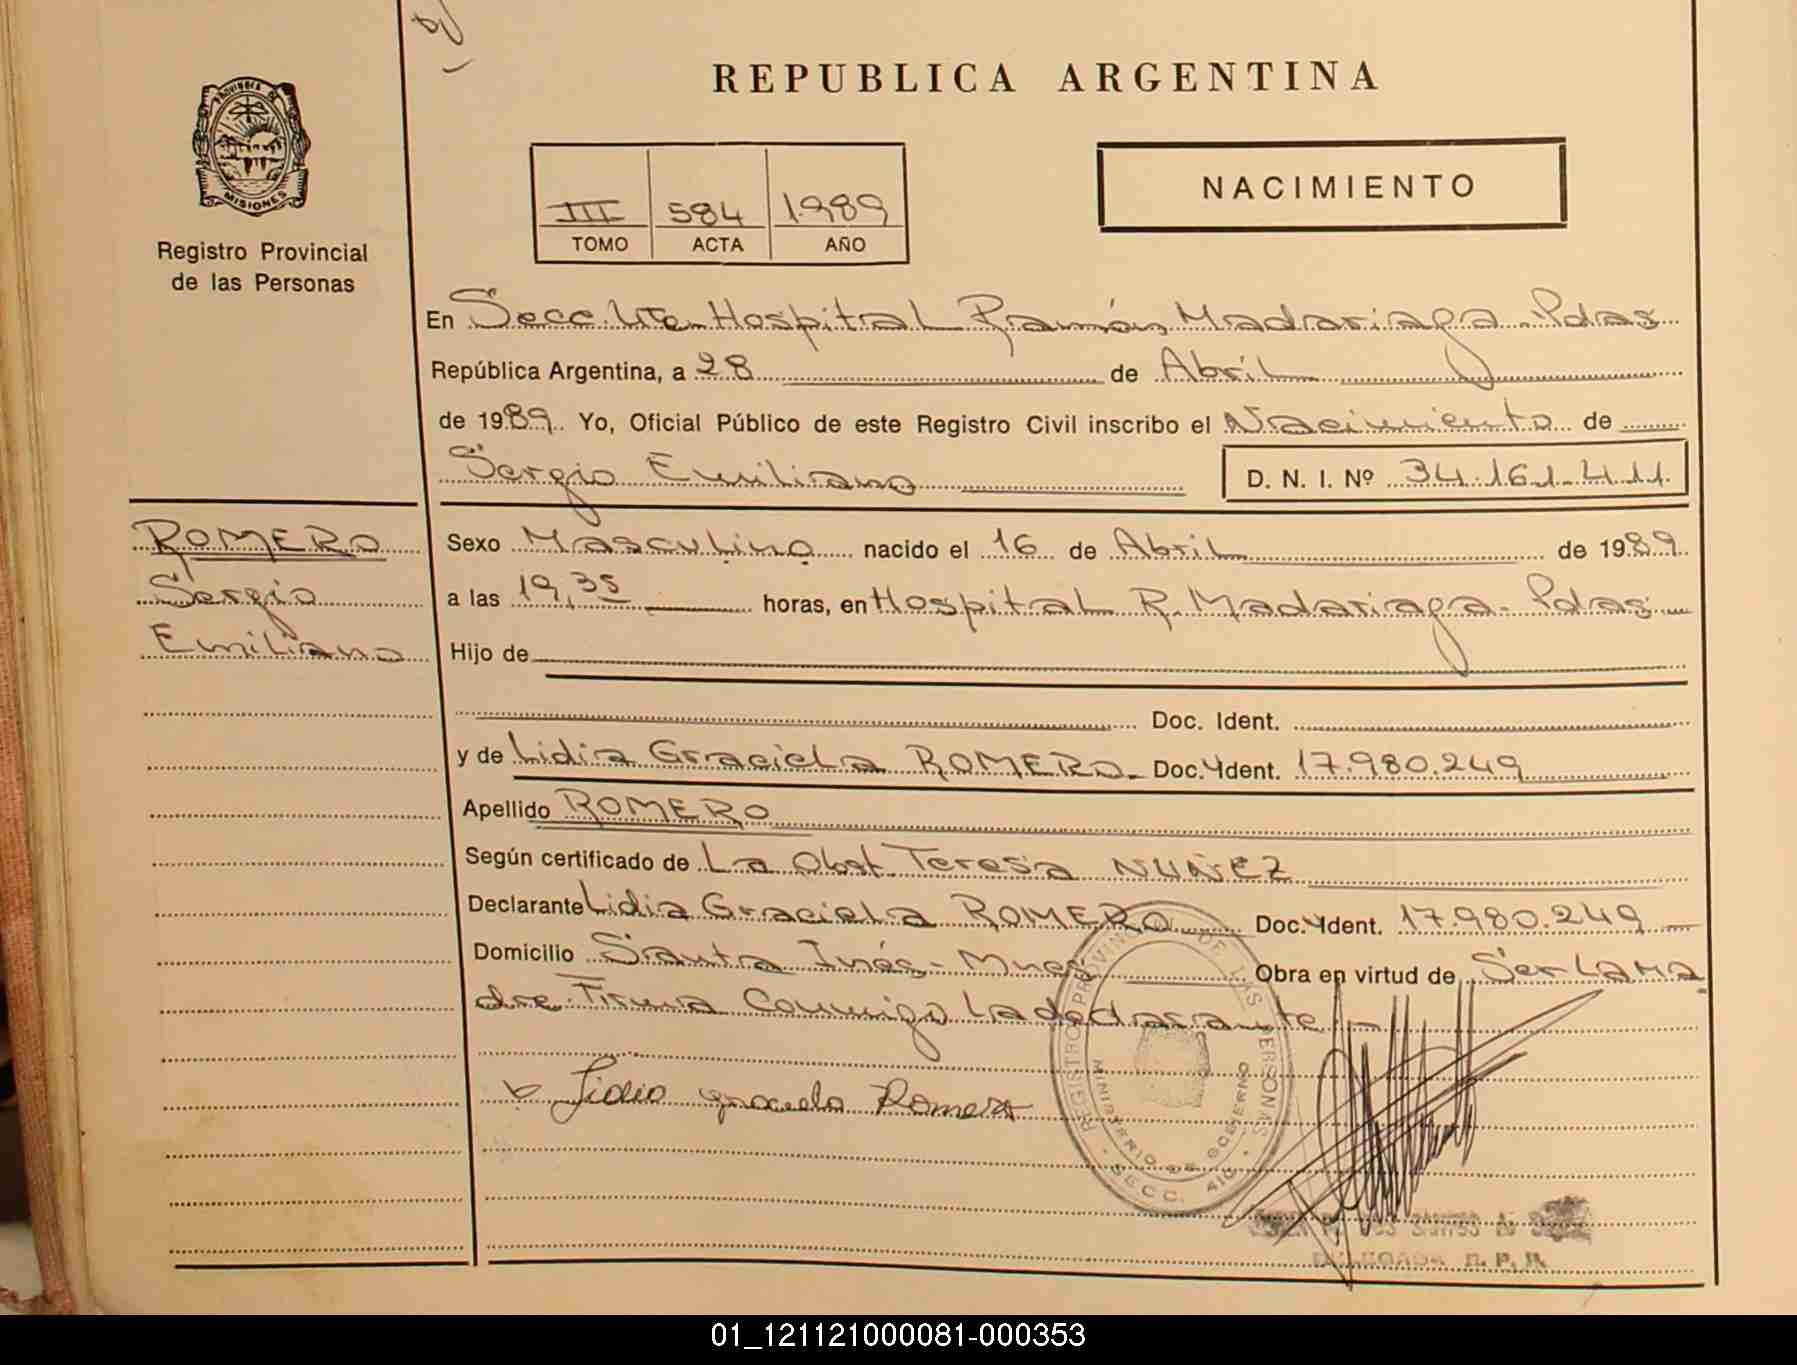 REPUBLICA ARGENTINA
PROVINCIA DE
MISIONES
Registro Provincial
de las Personas
III 584 1989
TOMO ACTA AÑO
NACIMIENTO
En Secc. Hospital Ramón Madariaga - Pdas
República Argentina, a 28 de Abril
de 1989. Yo, Oficial Público de este Registro Civil inscribo el Nacimiento de
Sergio Emiliano D. N. I. Nº 34.161.411.
ROMERO
Sergio
Emiliano
Sexo Masculino nacido el 16 de Abril de 1989.
a las 19,35 horas, en Hospital R. Madariaga - Pdas
Hijo de
Doc. Ident.
y de Lidia Graciela ROMERO - Doc. Ident. 17.980.249
Apellido ROMERO
Según certificado de La Obst. Teresa NUÑEZ
Declarante Lidia Graciela ROMERO Doc. Ident. 17.980.249
Domicilio Santa Inés - Mnes Obra en virtud de Ser La Ma
dre. Firma Conmigo La declarante
Lidia Graciela Romero
REGISTRO PROVINCIAL DE LAS PERSONAS
MINISTERIO DE GOBIERNO
SECC. 410
DELEGADA R. P. P.
01_121121000081-000353